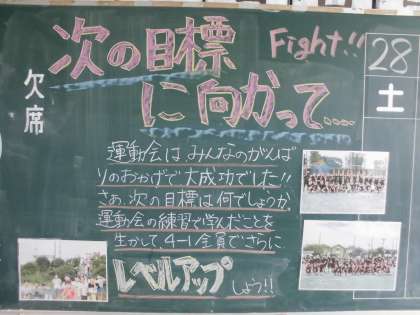 次の目標
に向かって....
Fight!!
28
土
欠席
運動会はみんなのがんば
りのおかげで大成功でした!!
さぁ、次の目標は何でしょうか。
運動会の練習で学んだことを
生かして、4-1全員でさらに
レベルアップ
しよう!!